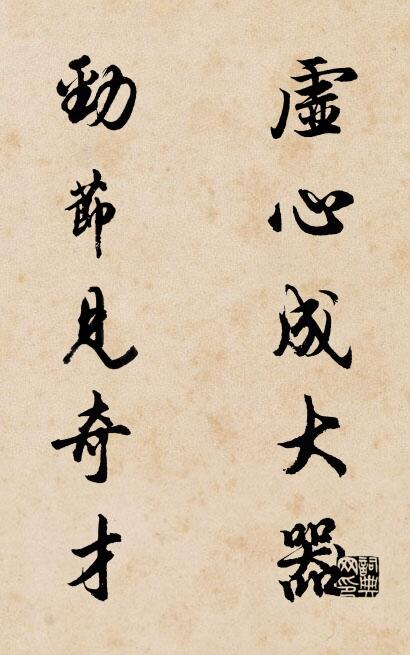 虛心成大器
勁節見奇才
詞典
网印